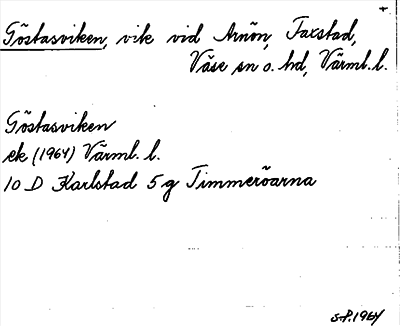 Göstasviken, vik vid Arnön, Taxstad,
Väse sn o. hd, Värml. l.
Göstasviken
ek (1964) Värml. l.
10 D Karlstad 5 g Timmeröarna
S-P.1964